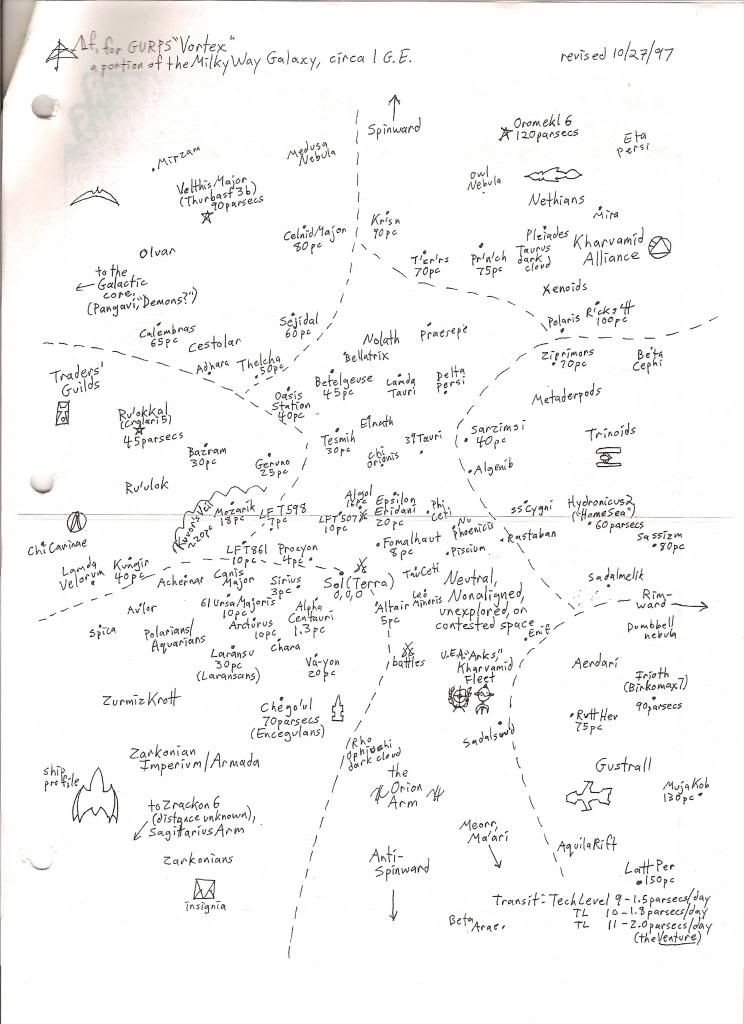 Af, for GURPS "Vortex"
a portion of the Milky Way Galaxy, circa 1 G.E.
revised 10/27/97
Spinward
Oromekl 6
120 parsecs
Eta
Persi
Mirzam
Medusa
Nebula
Owl
Nebula
Velthis Major
(Thurbast 3b)
90 parsecs
Nethians
Mira
Celnid Major
80 pc
Krisn
90 pc
Pleiades
Taurus
dark
cloud
Kharvamid
Alliance
Olvar
T'zr'rs
70pc
Pr'n'ch
75pc
to the
Galactic
core,
(Pangavi, "Demons?")
Xenoids
Ricks H
100pc
Polaris
Calembras
65pc
Sejidal
60pc
Cestolar
Nolath
Praesepe
Bellatrix
Ziprimors
70pc
Beta
Cephi
Adhara
Thelcha
50pc
Traders'
Guilds
Betelgeuse
45pc
Lamda
Tauri
Delta
Persi
Oasis
Station
40pc
Metaderpods
Ru'okkal
(Cralari 5)
45 parsecs
Elnath
Tesmih
30pc
39 Tauri
Sarzimsi
40pc
Trinoids
Chi
Orionis
Bazram
30pc
Geruno
25pc
Algenib
Ru'ulok
Algol
Epsilon
Eridani
20pc
Phi
Ceti
ss Cygni
Hydronicus 2
("HomeSea")
60 parsecs
Mozarik
18pc
LFT 598
7pc
LFT 507
10pc
Nu
Phoenicis
Rastaban
Sassizm
80pc
Chi Carinae
LFT 861
10pc
Procyon
4pc
Fomalhaut
8pc
Piscium
Lamda
Velorum
Kungir
40pc
Achernar
Canis
Major
Sirius
3pc
Sol (Terra)
0,0,0
Tau Ceti
Neutral,
Nonaligned,
unexplored, or
contested space
Sadalmelik
Rim-
ward
Av'lor
61 Ursa Majoris
10pc
Alpha
Centauri
1.3pc
Altair
5pc
Leo
Minoris
Enif
Dumbbell
nebula
Spica
Polarians/
Aquarians
Arcturus
10pc
Chara
Laransu
30pc
(Laransans)
Va-yon
20pc
battles
U.E.A. "Arks,"
Kharvamid
Fleet
Aerdari
Irioth
(Birkomax 7)
90 parsecs
Zurmiz Krott
Chego'ul
70 parsecs
(Encegulans)
Rutt Hev
75pc
Sadalsuud
Zarkonian
Imperium/Armada
Rho
Ophiuchi
dark cloud
ship
profile
the
Orion
Arm
Gustrall
Muja Kob
130pc
to Zrackon 6
(distance unknown),
Sagittarius Arm
Meorr,
Ma'ari
Aquila Rift
Zarkonians
Anti-
Spinward
Latt Per
150pc
insignia
Beta
Arae
Transit: Tech Level 9 - 1.5 parsecs/day
TL 10 - 1.8 parsecs/day
TL 11 - 2.0 parsecs/day
(the Venture)